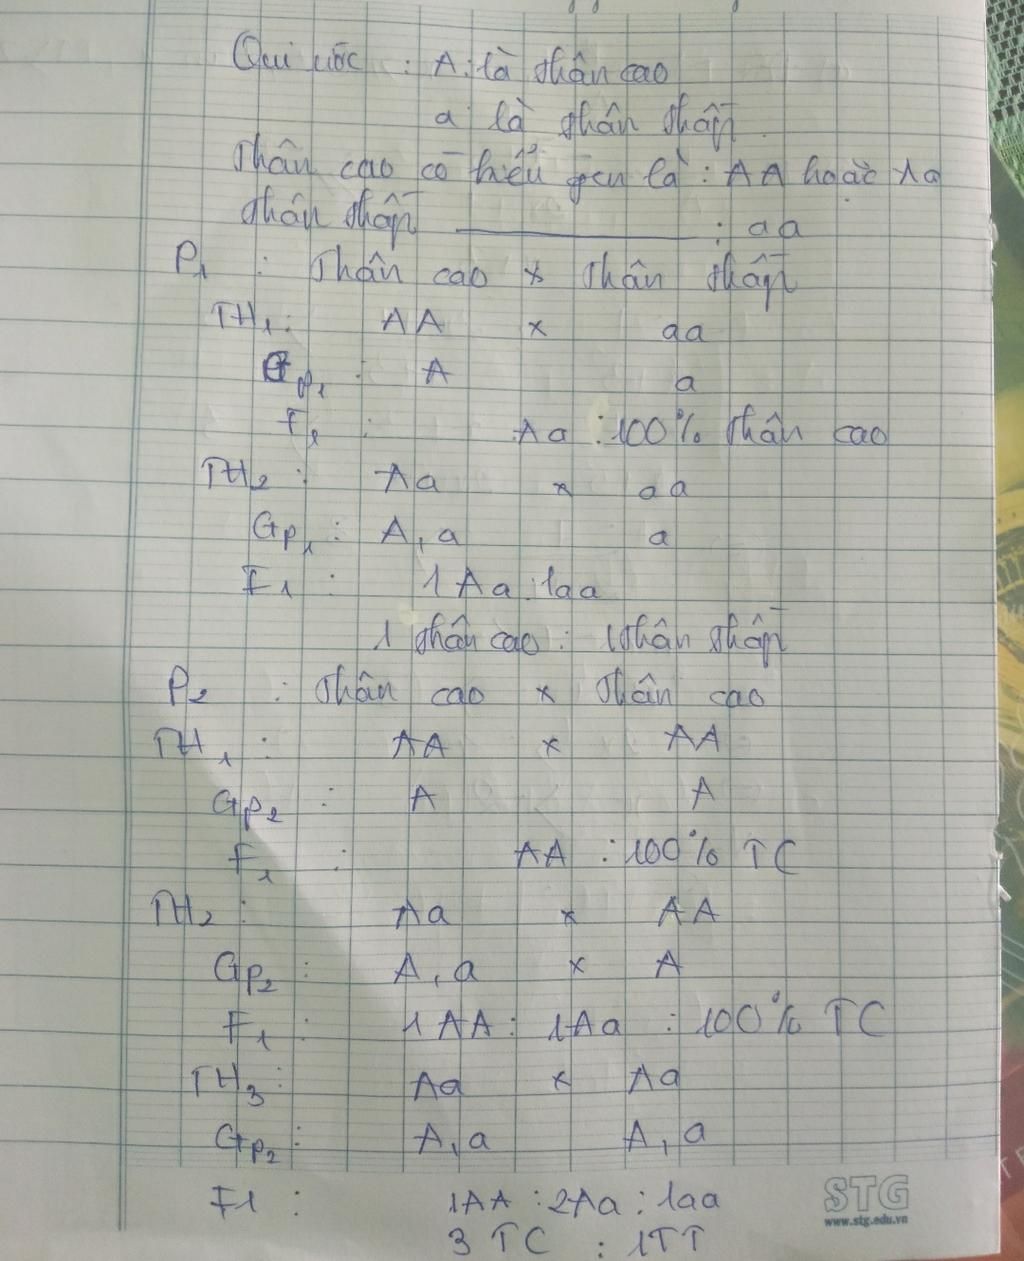 Qui ước : A: là thân cao
a là thân thấp
Thân cao có kiểu gen là : AA hoặc Aa
thân thấp ———— : aa
P1 : Thân cao x thân thấp
TH1: AA x aa
GP1 : A a
F1 : Aa : 100% thân cao
TH2 : Aa x aa
GP1 : A, a a
F1 : 1Aa : 1aa
1 thân cao : 1thân thấp
P2 : thân cao x thân cao
TH1 : AA x AA
GP2 : A A
F1 : AA : 100% TC
TH2 : Aa x AA
GP2 : A, a x A
F1 : 1AA : 1Aa : 100% TC
TH3 : Aa x Aa
GP2 : A, a A, a
F1 : 1AA : 2Aa : 1aa
3 TC : 1TT
STG
www.stg.edu.vn